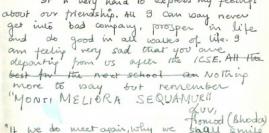 it is very hard to express my feelings
about our friendship. All I can say never
get into bad company, prosper in life
and do good in all walks of life. I
am feeling very sad that you are
departing from us after the ICSE. All the
best for the next school an Nothing
more to say but remember
"MONTI MELIORA SEQUAMUR"
Luv,
Pramod (Bhodu)
"If we do meet again, why we shall smile